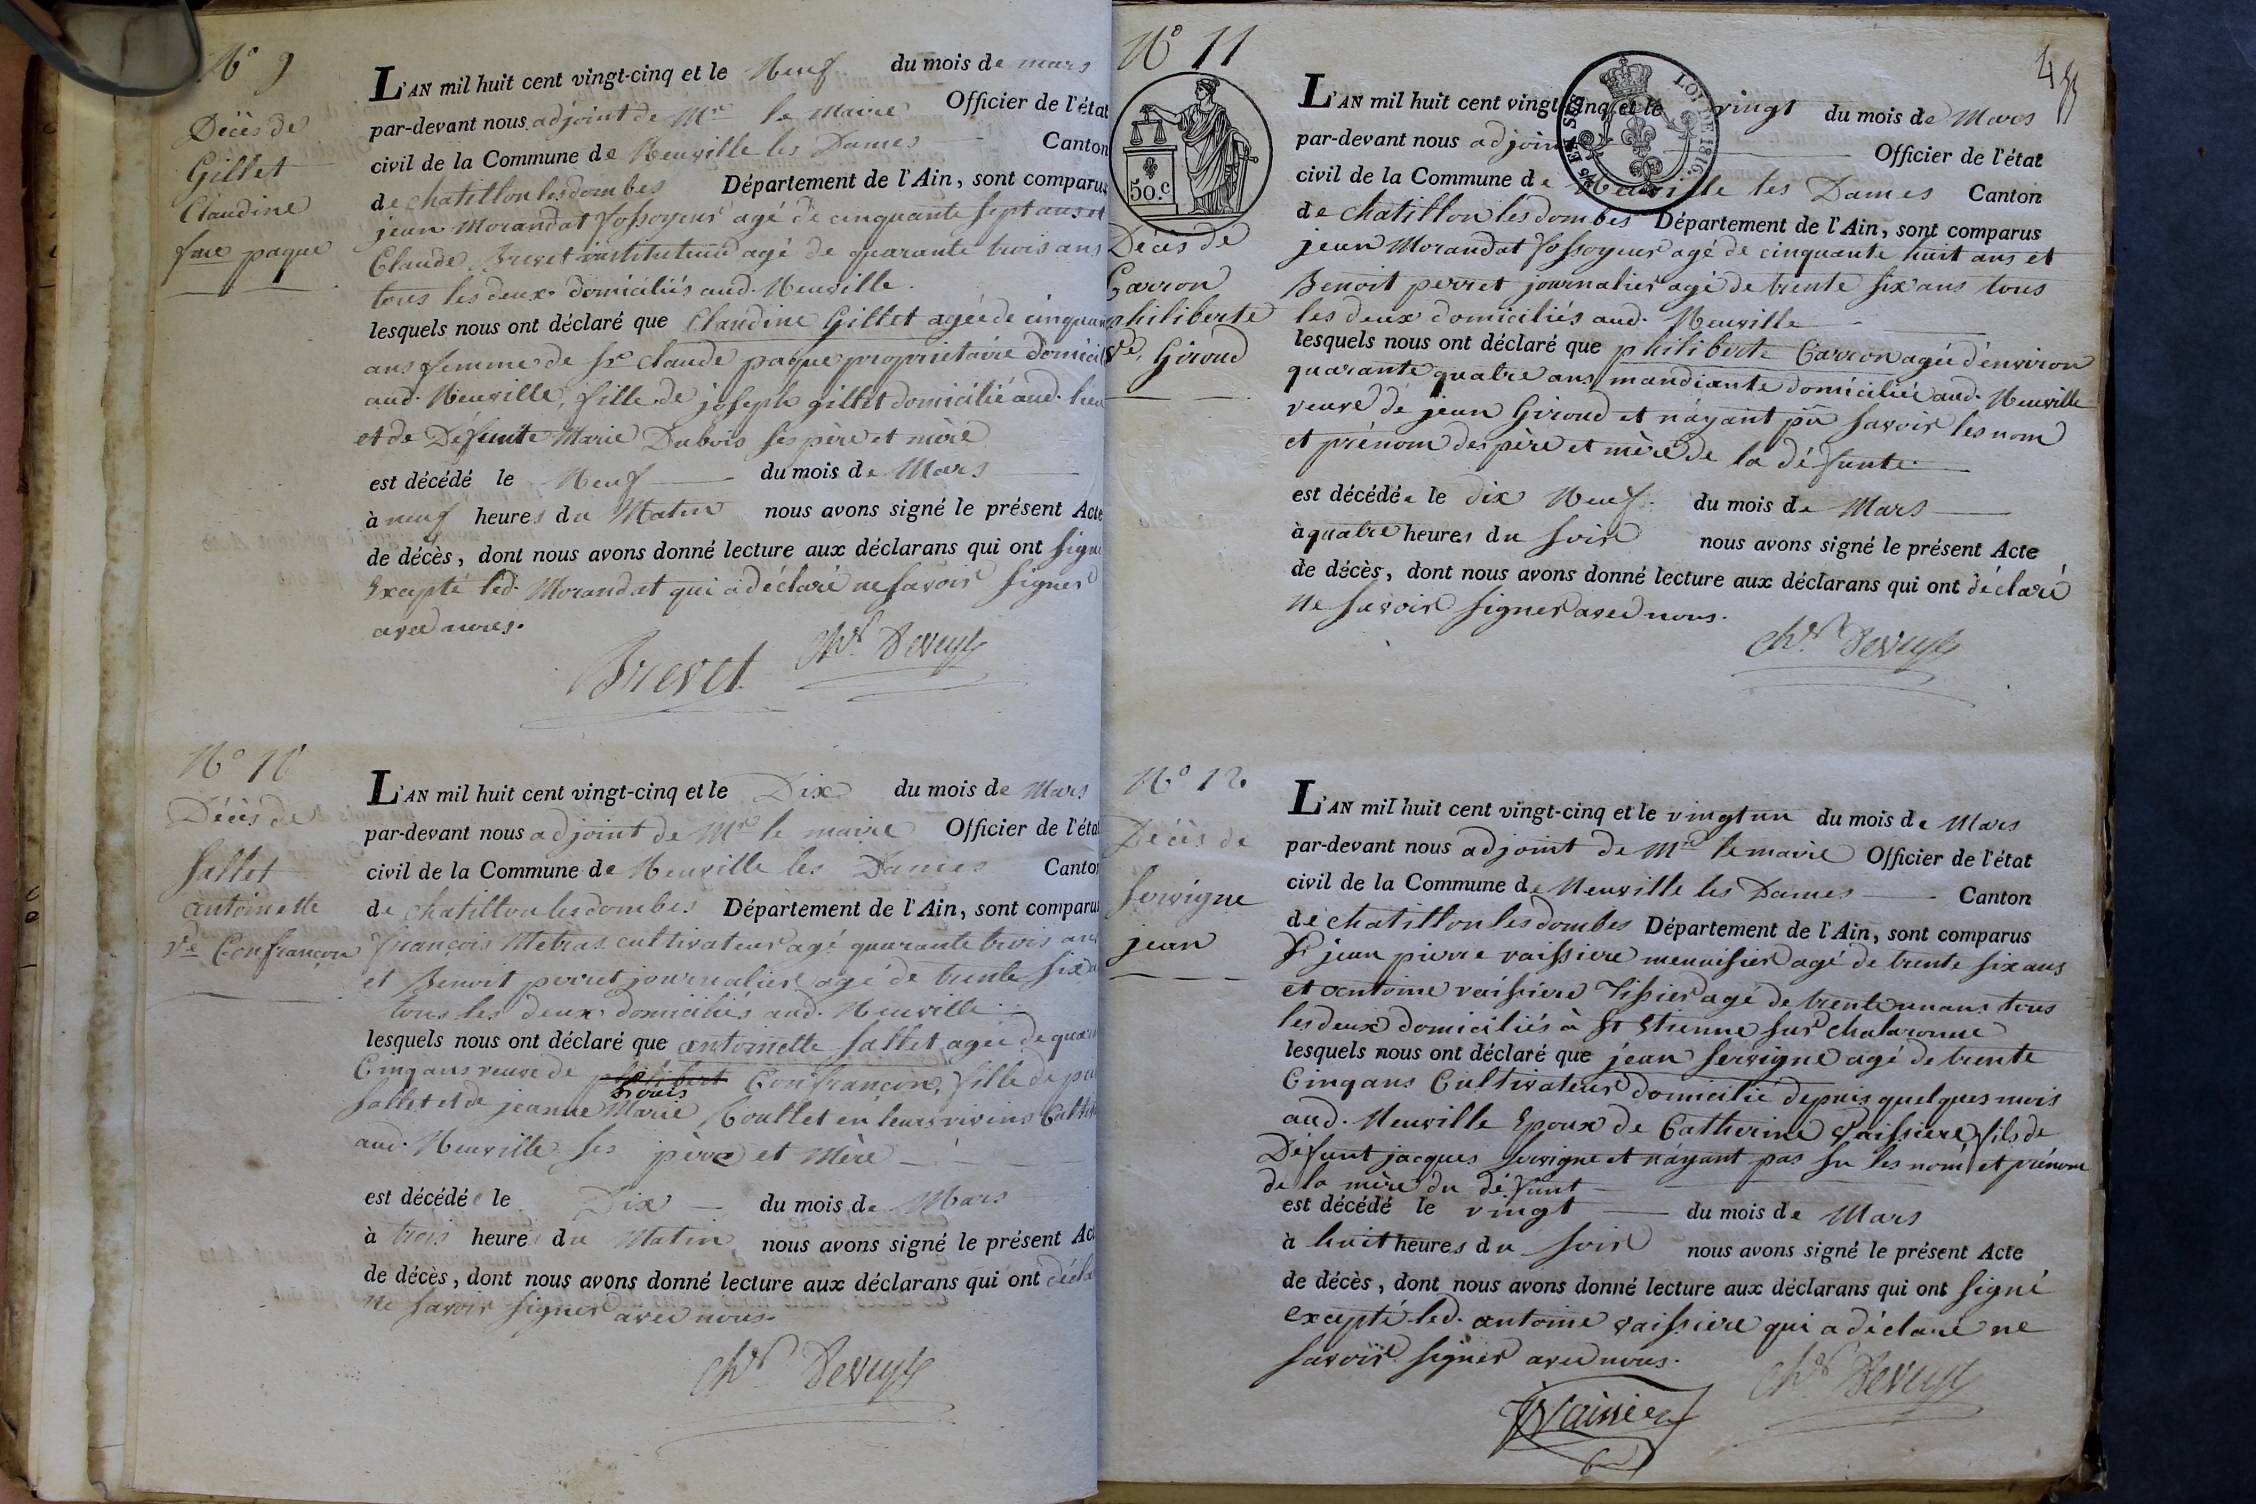 N° 9
Décès de
Gillet
Claudine
fme paque
L'AN mil huit cent vingt-cinq et le Neuf du mois de mars
par-devant nous adjoint de Mr le Maire Officier de l'état
civil de la Commune de Neuville les Dames Canton
de chatillon les dombes Département de l'Ain, sont comparus
jean Morandat fossoyeur agé de cinquante sept ans et
Claude Brevet instituteur agé de quarante trois ans
tous les deux domiciliés aud. Neuville.
lesquels nous ont déclaré que Claudine Gillet agée de cinquan
ans femme de Sr claude paque propriétaire domicil
aud. Neuville, fille de joseph gillet domicilié aud. lieu
et de Défunte Marie Dubois ses père et mère
est décédé le Neuf du mois de Mars
à neuf heures du Matin nous avons signé le présent Acte
de décès, dont nous avons donné lecture aux déclarans qui ont signé
Excepté led. Morandat qui a déclaré ne savoir signer
avec nous.
Brevet Chr Deveyle
N° 10
Décès de
Sallet
antoinette
ve Confrançon
L'AN mil huit cent vingt-cinq et le Dix du mois de Mars
par-devant nous adjoint de Mr le maire Officier de l'état
civil de la Commune de Neuville les Dames Canton
de chatillon les dombes Département de l'Ain, sont comparus
françois Metras cultivateur agé quarante trois ans
et Benoit perret journalier agé de trente six
tous les deux domiciliés aud. Neuville
lesquels nous ont déclaré que antoinette Sallet agée de quaran
Cinq ans veuve de philibert Confrançon, fille de
Louis
Sallet et de jeanne Marie Roullet en leurs vivans Culti
aud. Neuville ses père et Mère
est décédée le Dix du mois de Mars
à trois heure du Matin nous avons signé le présent Act
de décès, dont nous avons donné lecture aux déclarans qui ont décla
Ne savoir signer avec nous.
Chr Deveyle
N° 11
50.c
Décès de
Carron
philiberte
Ve Giroud
LOI DE 1816.
4
L'AN mil huit cent vingt-cinq et le vingt du mois de Mars
par-devant nous adjoint Officier de l'état
civil de la Commune de Neuville les Dames Canton
de chatillon les dombes Département de l'Ain, sont comparus
jean Morandat fossoyeur agé de cinquante huit ans et
Benoit perret journalier agé de trente six ans tous
les deux domiciliés aud. Neuville
lesquels nous ont déclaré que philiberte Carron agée d'environ
quarante quatre ans mandiante domiciliée aud. Neuville
veuve de jean Giroud et n'ayant pû savoir les nom
et prénom des père et mère de la défunte.
est décédée le dix Neuf. du mois de Mars
à quatre heures du soir nous avons signé le présent Acte
de décès, dont nous avons donné lecture aux déclarans qui ont déclaré
Ne savoir signer avec nous.
Chr Deveyle
N° 12
Décès de
Servigne
jean
L'AN mil huit cent vingt-cinq et le vingt un du mois de Mars
par-devant nous adjoint de Mr le maire Officier de l'état
civil de la Commune de Neuville les Dames Canton
de chatillon les dombes Département de l'Ain, sont comparus
Sr jean pierre vaissiere menuisier agé de trente six ans
et antoine vaissiere Tissier agé de trente un ans tous
les deux domiciliés à St Etienne sur chalaronne
lesquels nous ont déclaré que jean Servigne agé de trente
Cinq ans Cultivateur domicilié depuis quelques mois
aud. Neuville Epoux de Catherine Vaissiere, fils de
Défunt jacques Servigne et n'ayant pas su les nom et prénom
de la mère du défunt
est décédé le vingt du mois de Mars
à huit heures du soir nous avons signé le présent Acte
de décès, dont nous avons donné lecture aux déclarans qui ont signé
excepté led. antoine vaissiere qui a déclaré ne
savoir signer avec nous.
Chr Deveyle